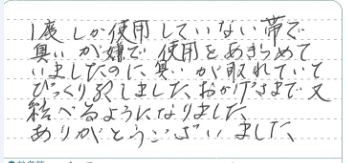 1度しか使用していない帯で
臭いが嫌で使用をあきらめて
いましたのに、臭いが取れていて
びっくり致しました、おかげさまで又
結べるようになりました、
ありがとうございました、